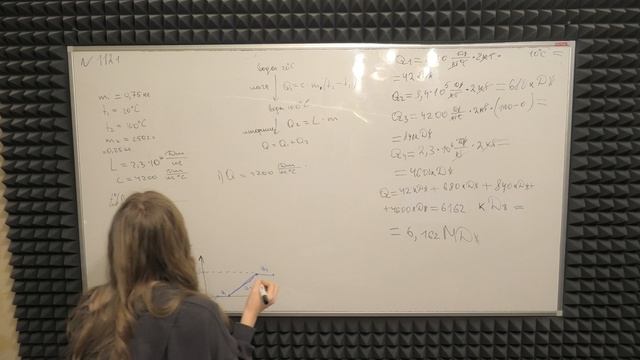 N 1121
m = 0,75кг
t₁ = 20°C
t₂ = 100°C
m₂ = 250г
=0,25кг
L = 2,3·10⁶ Дж/кг
C = 4200 Дж/кг°C
вода 20°C
Q₁ = c·m₁(t₂ - t₁)
вода 100°C
Q₂ = L·m
Q = Q₁+Q₂
1) Q = 4200 Дж/кг°C ·
· 2кг · 10°C =
= 42кДж
Q₂ = 3,4·10⁵ Дж/кг · 2кг = 680кДж
Q₃ = 4200 · 2кг · (100-0) =
= 840кДж
Q₄ = 2,3·10⁶ Дж/кг · 2кг =
= 4600кДж
Q = 42кДж + 680кДж + 840кДж+
+4600кДж = 6162 кДж =
= 6,162МДж